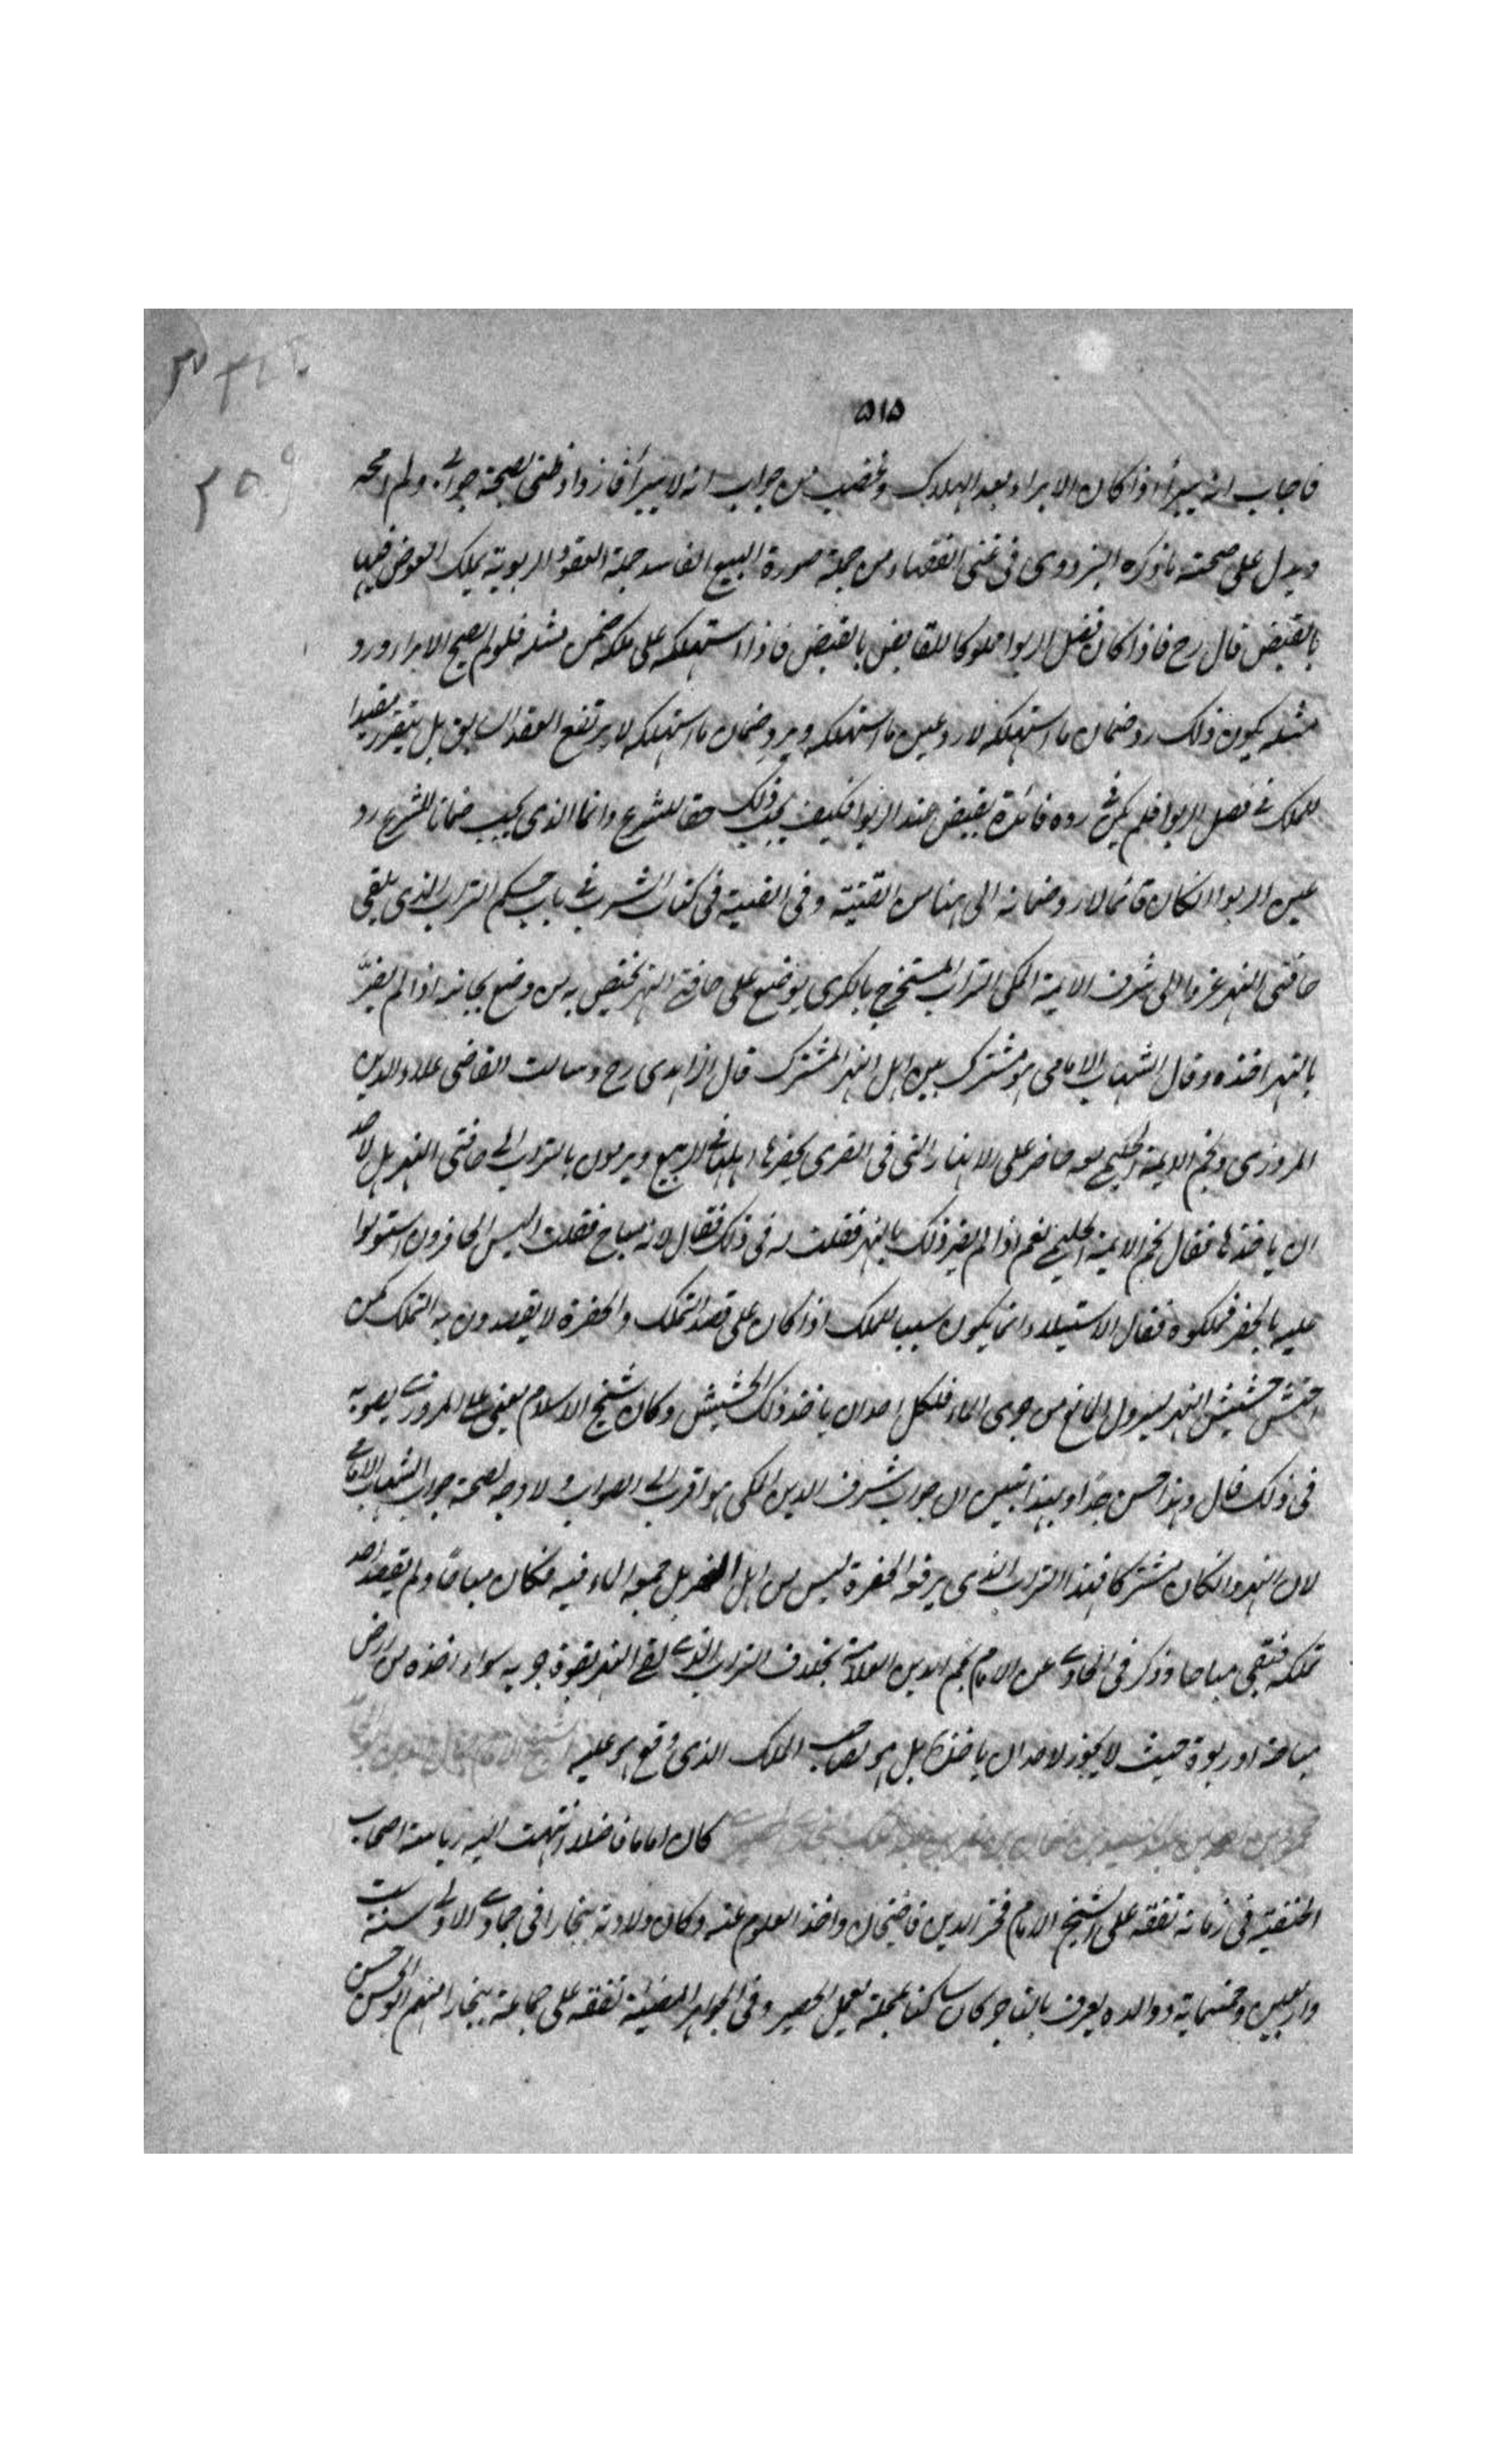 ٥١٥
فاجاب انه يبرأ اذا كان الابراء بعد الهلاك وغضب من جواب انه لا يبرأ فازداد ظنى بصحة جوابى ولم امحه
ويدل على صحته ما ذكره البزدوى فى غنى الفقهاء من جملة صورة البيع الفاسد جملة العقود الربوية يملك العوض فيها
بالقبض قال رح فاذا كان فضل الربوا مملوكا للقابض بالقبض فاذا استهلكه على ملكه ضمن مثله فلو لم يصح الابراء ورد
مثله يكون ذلك رد ضمان ما استهلكه لا رد عين ما استهلكه وبرد ضمان ما استهلكه لا يرتفع العقد السابق بل يتقرر مفيدا
للملك فى فضل الربوا فلم يكن فى رده فائدة بقبض عند الربوا فكيف يجب ذلك حقا للشرع وانما الذى يجب ضمانا للشرع رد
عين الربوا ان كان قائما لا رد ضمانه الى هنا من القنية وفى القنية فى كتاب الشرب فى باب حكم التراب الذى يلقى
حافتى النهر عزوا الى شرف الايمة المكى التراب المستخرج بالكرى يوضع على حافة النهر يختص به من وضع بجانبه اذا لم يضر
بالنهر اخذه وقال الشهاب الامامى هو مشترك بين اهل النهر المشترك قال الزاهدى رح وسالت القاضى علاء الدين
المروزى ونجم الايمة الحليمى معه حاضر على الانهار التى فى القرى يحفرها اهلها فى الربيع ويرمون بالتراب الى حافتى النهر هل لاحد
ان ياخذها فقال نجم الايمة الحليمى نعم اذا لم يضر ذلك بالنهر فقلت له فى ذلك فقال لانه مباح فقلت اليس الحافرون استولوا
عليه بالحفر فملكوه فقال الاستيلاء انما يكون سببا للملك اذا كان على قصد التملك والحفرة لا يقصدون به التملك كمن
احتش حشيش النهر ليزول المانع من جرى الماء فلكل احد ان ياخذ ذلك الحشيش وكان شيخ الاسلام يعنى علاء المروزى يصوبه
فى ذلك قال وهذا حسن جدا وبهذا تبين ان جواب شرف الدين المكى هو اقرب الى الصواب ولا وجه لصحة جواب الشهاب الامامى
لان النهر وان كان مشتركا فهذا التراب الذى يرفع الحفرة ليس من اهل النهر بل جمعه الماء فيه فكان مباحا ولم يقصد احد
تملكه فبقى مباحا وذكر فى الحاوى عن الامام نجم الدين العلامة بخلاف التراب الذى القى النهر بقوة جريه سواء اخذه من ارض
مباحة او ربوة حيث لا يجوز لاحد ان ياخذه بل هو لصاحب الملك الذى وقع هو عليه الشيخ الامام
محمود بن احمد بن عبد السيد بن عثمان بن نصر بن عبد الملك كان اماما فاضلا انتهت اليه رياسة اصحاب
الحنفية فى زمانه تفقه على الشيخ الامام فخر الدين قاضيخان واخذ العلوم عنه وكان ولادته ببخارا فى جمادى الاولى سنة ست
واربعين وخمسماية ووالده يعرف بالتاجر كان ساكنا بمحلة يعمل الحصير وفى الجواهر المضيئة تفقه على جماعة ببخارا منهم ابو الحسن